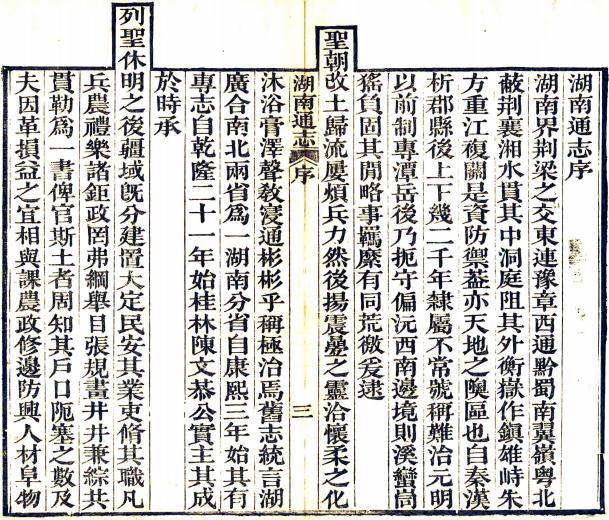 湖南通志序
湖南界荆梁之交東連豫章西通黔蜀南翼嶺粵北
蔽荆襄湘水貫其中洞庭阻其外衡嶽作鎮雄峙朱
方重江複關是資防禦蓋亦天地之隩區也自秦漢
析郡縣後上下幾二千年隸屬不常號稱難治元明
以前制專潭岳後乃扼守偏沅西南邊境則溪蠻峝
猺負固其閒略事羈縻有同荒徼爰逮
聖朝改土歸流屢煩兵力然後揚震疊之靈洽懷柔之化
湖南通志 序 三
沐浴膏澤聲敎濅通彬彬乎稱極治焉舊志統言湖
廣合南北兩省爲一湖南分省自康熙三年始其有
專志自乾隆二十一年始桂林陳文恭公實主其成
於時承
列聖休明之後疆域旣分建置大定民安其業吏脩其職凡
兵農禮樂諸鉅政罔弗綱舉目張規畫井井兼綜共
貫勒爲一書俾官斯土者周知其戶口阨塞之數及
夫因革損益之宜相與課農政修邊防興人材阜物